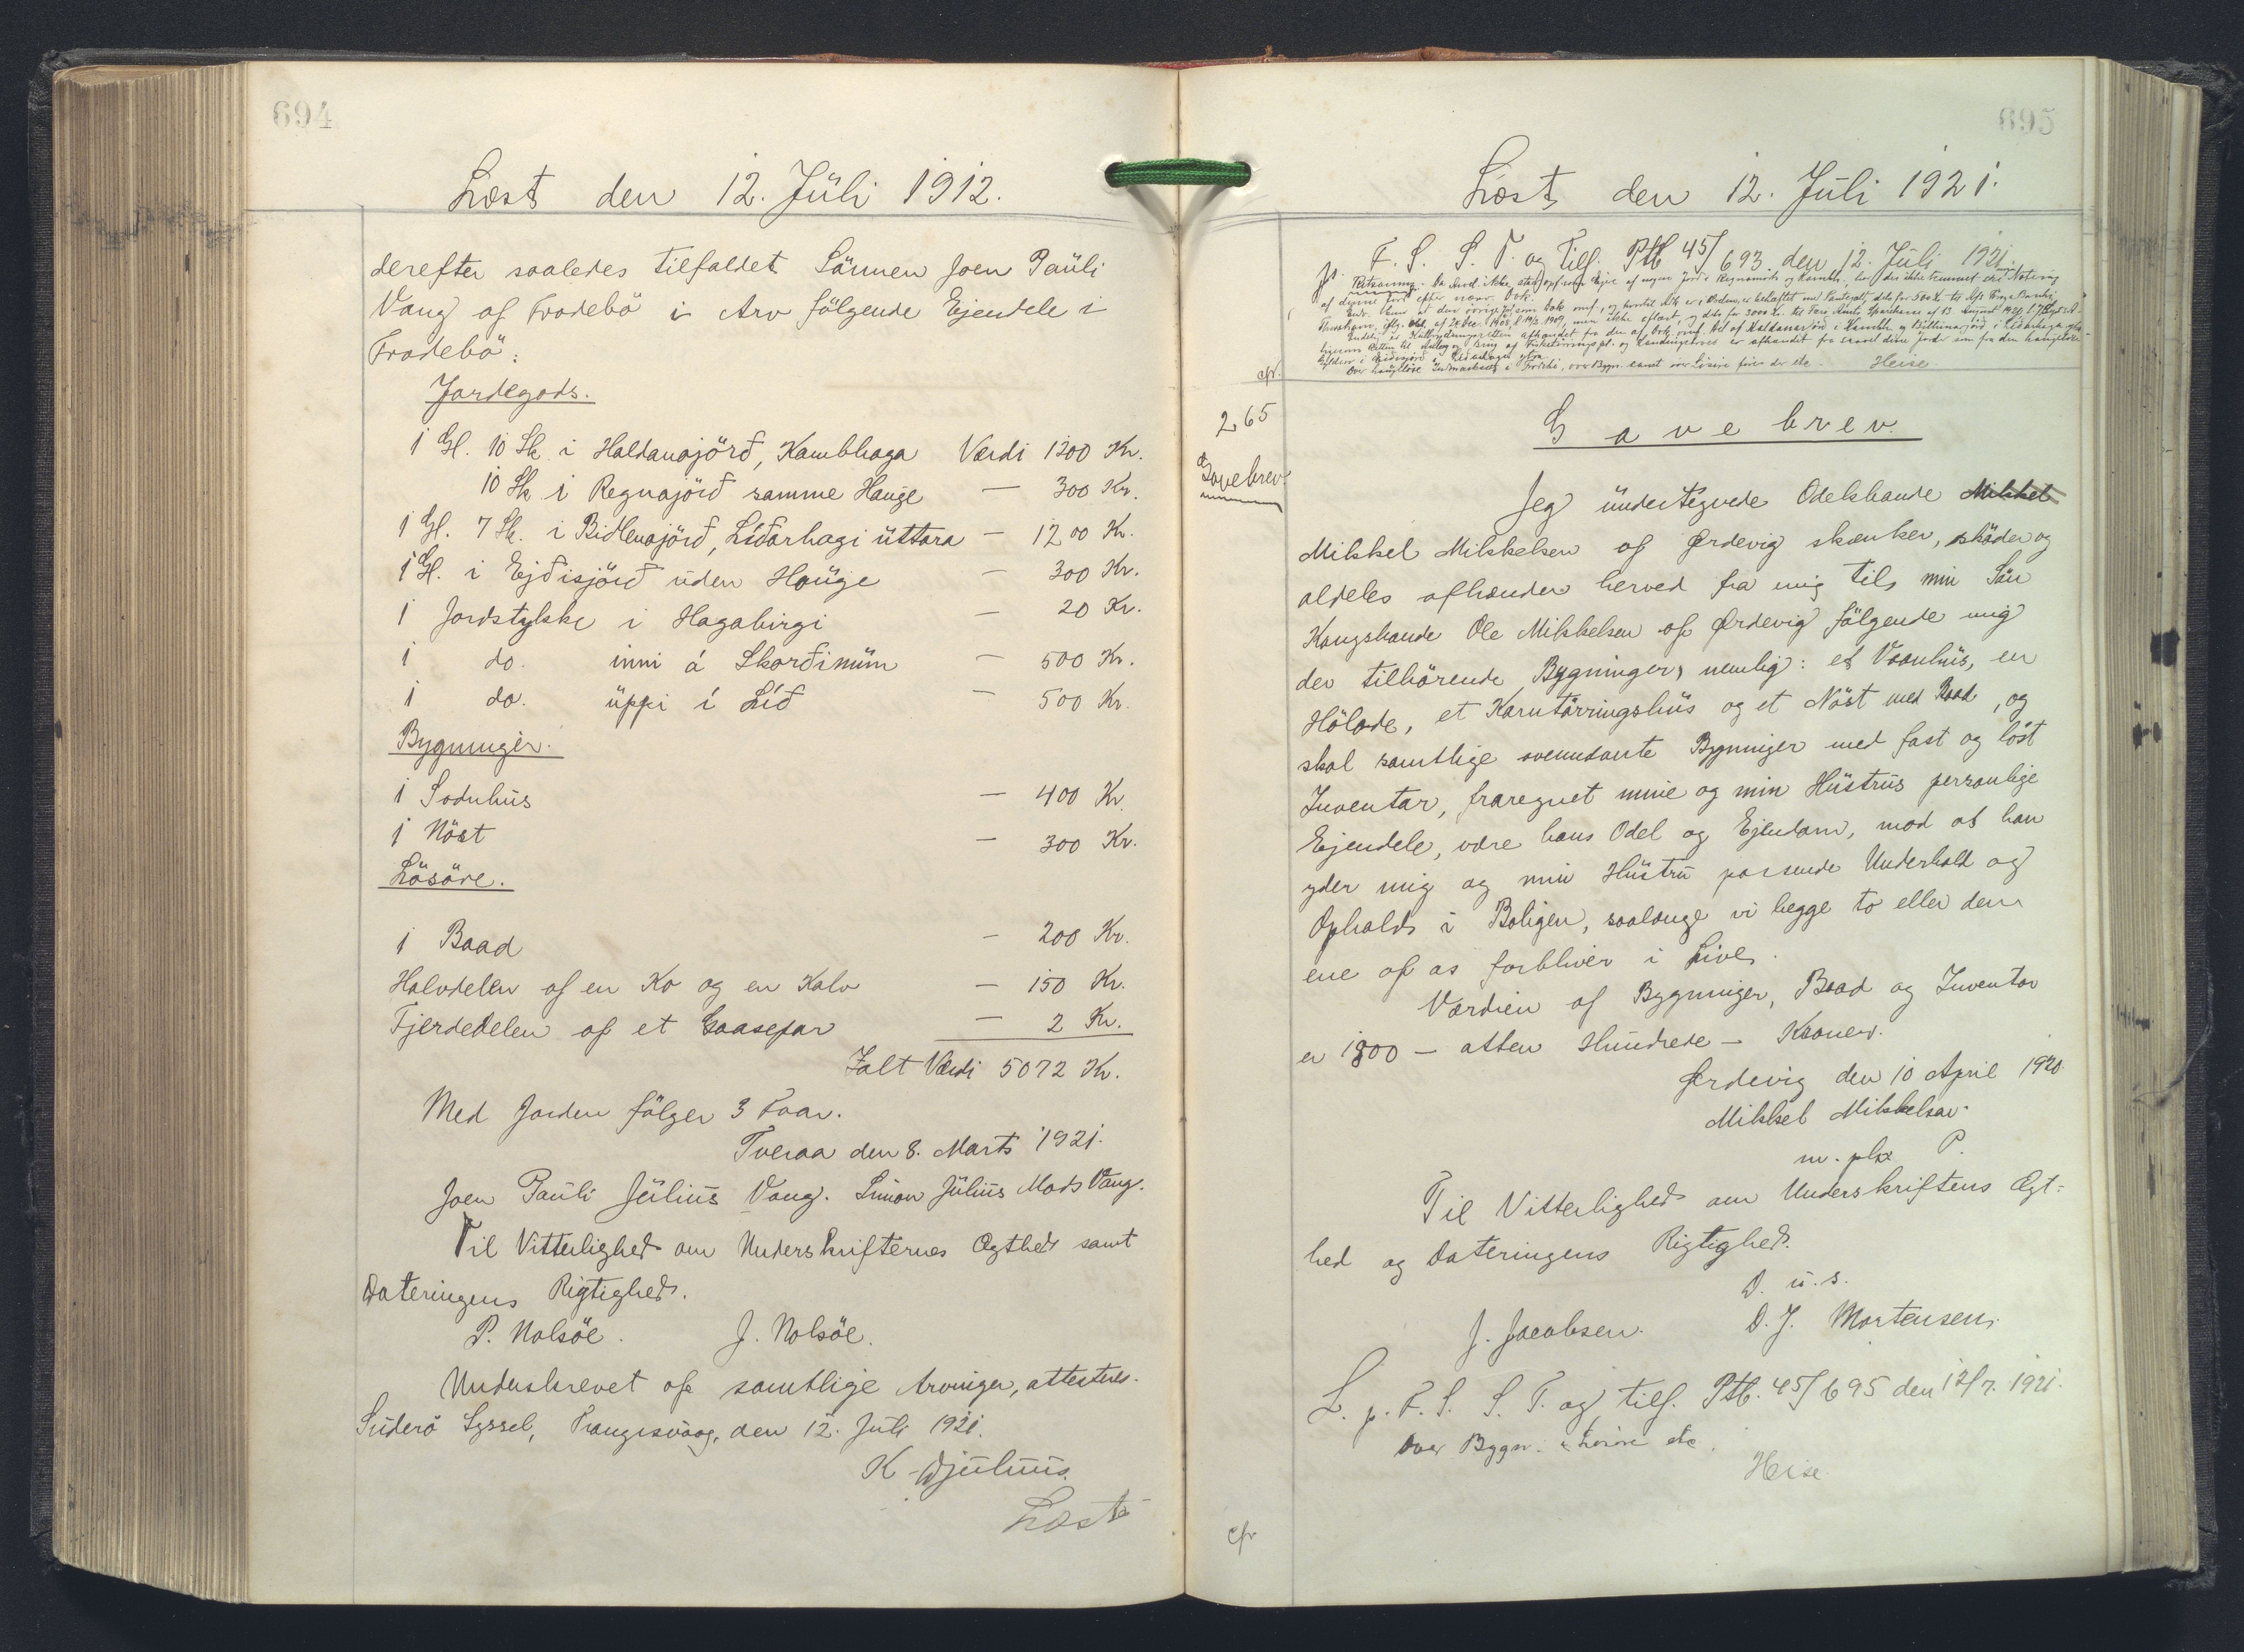 694
Læst den 12. Júli 1912.
derefter saaledes tilfaldet Sönnen Joen Paúli
Vang af Frodebö i Arv fölgende Ejendele i
Frodebö:
Jordegods.
1 Gl. 10 Sk. i Haldanajörð, Kambhaga Værdi 1300 Kr.
10 Sk i Regnajörð samme Haúge — 300 Kr.
1 Gl. 7 Sk. i Bidlenajörð, Líðarhagi úttara — 1200 Kr.
1 Gl. i Ejðisjörð úden Haúge — 300 Kr.
1 Jordstykke i Hagabirgi — 20 Kr.
1 do. inni á Skorðinúm — 500 Kr.
1 do. úppi í Líð — 500 Kr.
Bygninger.
1 Sodnhús — 400 Kr.
1 Nöst — 300 Kr.
Lösöre.
1 Baad — 200 Kr.
Halvdelen af en Ko og en Kalv — 150 Kr.
Fjerdedelen af et Gaasepar — 2 Kr.
Ialt Værdi 5072 Kr.
Med Jorden fölger 3 Faar.
Tveraa den 8. Marts 1921.
Joen Paúli Júliús Vang. Simon Júliús Mads Vang.
Til Vitterlighed om Underskrifternes Ægthed samt
Dateringens Rigtighed.
P. Nolsöe. J. Nolsöe.
Underskrevet af samtlige Arvinger, attesteres.
Súderö Syssel, Trangisvaag, den 12. Júli 1921.
K Djúlúús.
Læst
695
Læst den 12. Júli 1921.
p. F. S. S. T. og Tilf. Ptb 45/693 den 12. Júli 1921.
Heise.
cfr.
265
Gavebrev
Gavebrev.
Jeg úndertegnede Odelsbonde Mikkel
Mikkel Mikkelsen af Ørdevig skænker, skøder og
aldeles afhænder herved fra mig til min Sön
Kongsbonde Ole Mikkelsen af Ørdevig fölgende mig
der tilhörende Bygninger, nemlig: et Vaanhús, en
Hölade, et Korntörringshús og et Nöst med Baad, og
skal samtlige ovennævnte Bygninger med fast og löst
Inventar, fraregnet mine og min Hústrús personlige
Ejendele, være hans Odel og Ejendom, mod at han
yder mig og min Hústrú passende Underhold og
Ophold i Boligen, saalænge vi begge to eller den
ene af os forbliver i Live.
Værdien af Bygninger, Baad og Inventar
er 1800 — atten Húndrede — Kroner.
Ørdevig den 10 April 1920.
Mikkel Mikkelsen.
m. p. P.
Til Vitterlighed om Underskriftens Ægt-
hed og Dateringens Rigtighed.
D. ú. s.
J. Jacobsen. D. J. Mortensen.
L. p. F. S. S. T. og tilf. Ptb. 45/695 den 12/7. 1921.
over Bygn. & Lösöre etc.
Heise
cfr